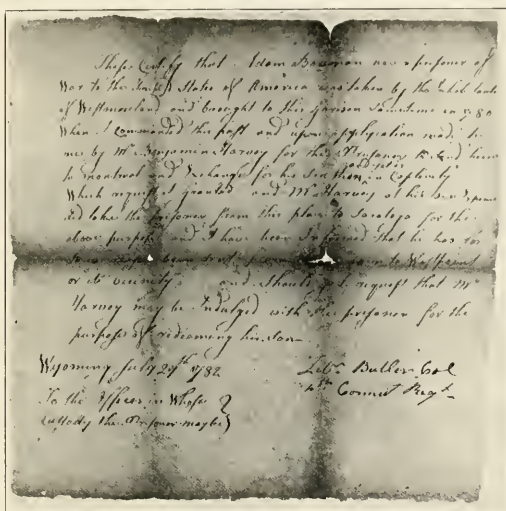 These Certify that Adam Bowman now a prisoner of
War to the States of America was taken by the
of Westmoreland and brought to this Garison sometime in 1780
When I commanded the post and upon application made to
me by Mr Benjamin Harvey for the Prisoner to Send him
to montreal and Exchange for his Son then in Captivity
Which request I granted and Mr Harvey at his own Expence
did take the prisoner from this place to Saratoga for the
above purpose and I have been Informed that he has
been to Westpoint
or its vecinity and should request that Mr
Harvey may be Indulged with the prisoner for the
purpose of redeeming his son
Wyoming July 29th 1782
Zebn Butler Col
4th Connut Regt
To the Officer in Whose
Custody the Prisoner may be